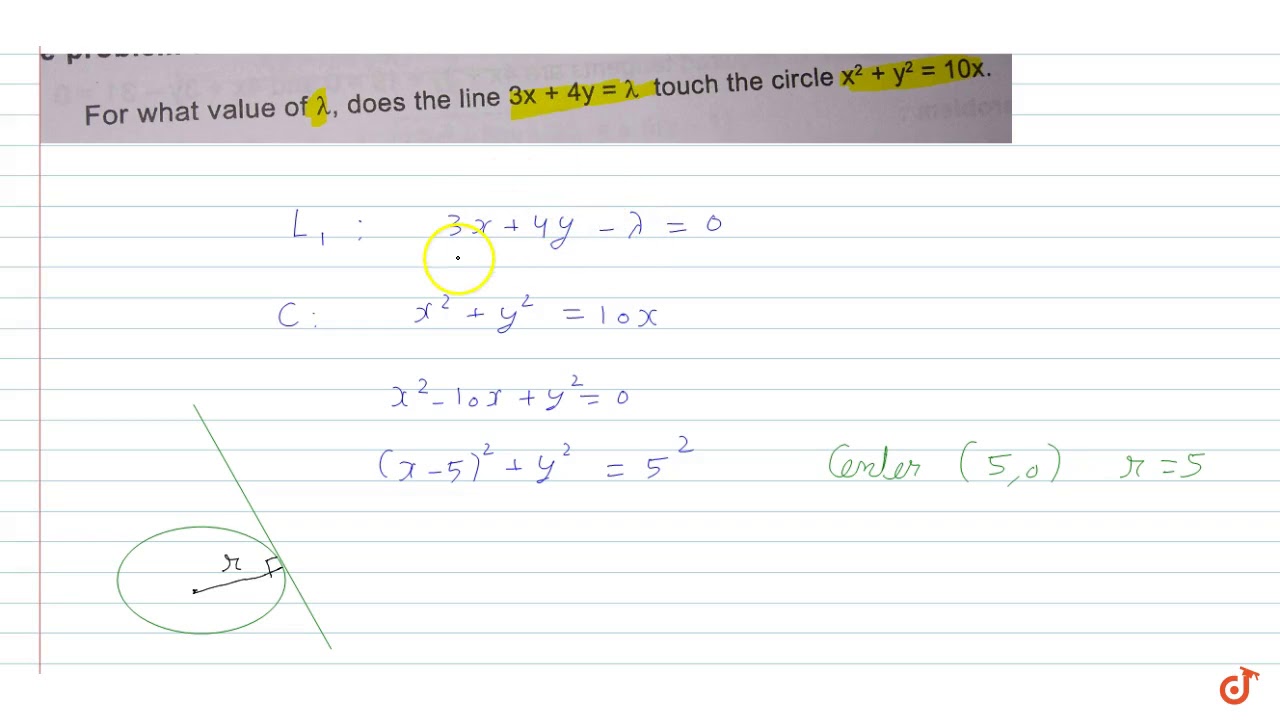 For what value of λ, does the line 3x + 4y = λ touch the circle x² + y² = 10x.
L₁ : 3x + 4y - λ = 0
C : x² + y² = 10x
x² - 10x + y² = 0
(x - 5)² + y² = 5² Center (5,0) r = 5
r